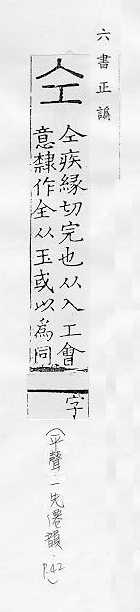 六書正譌
仝
仝疾緣切完也从入工會
意隸作全从玉或以為同
字
(平聲一先卷韻 P.42)